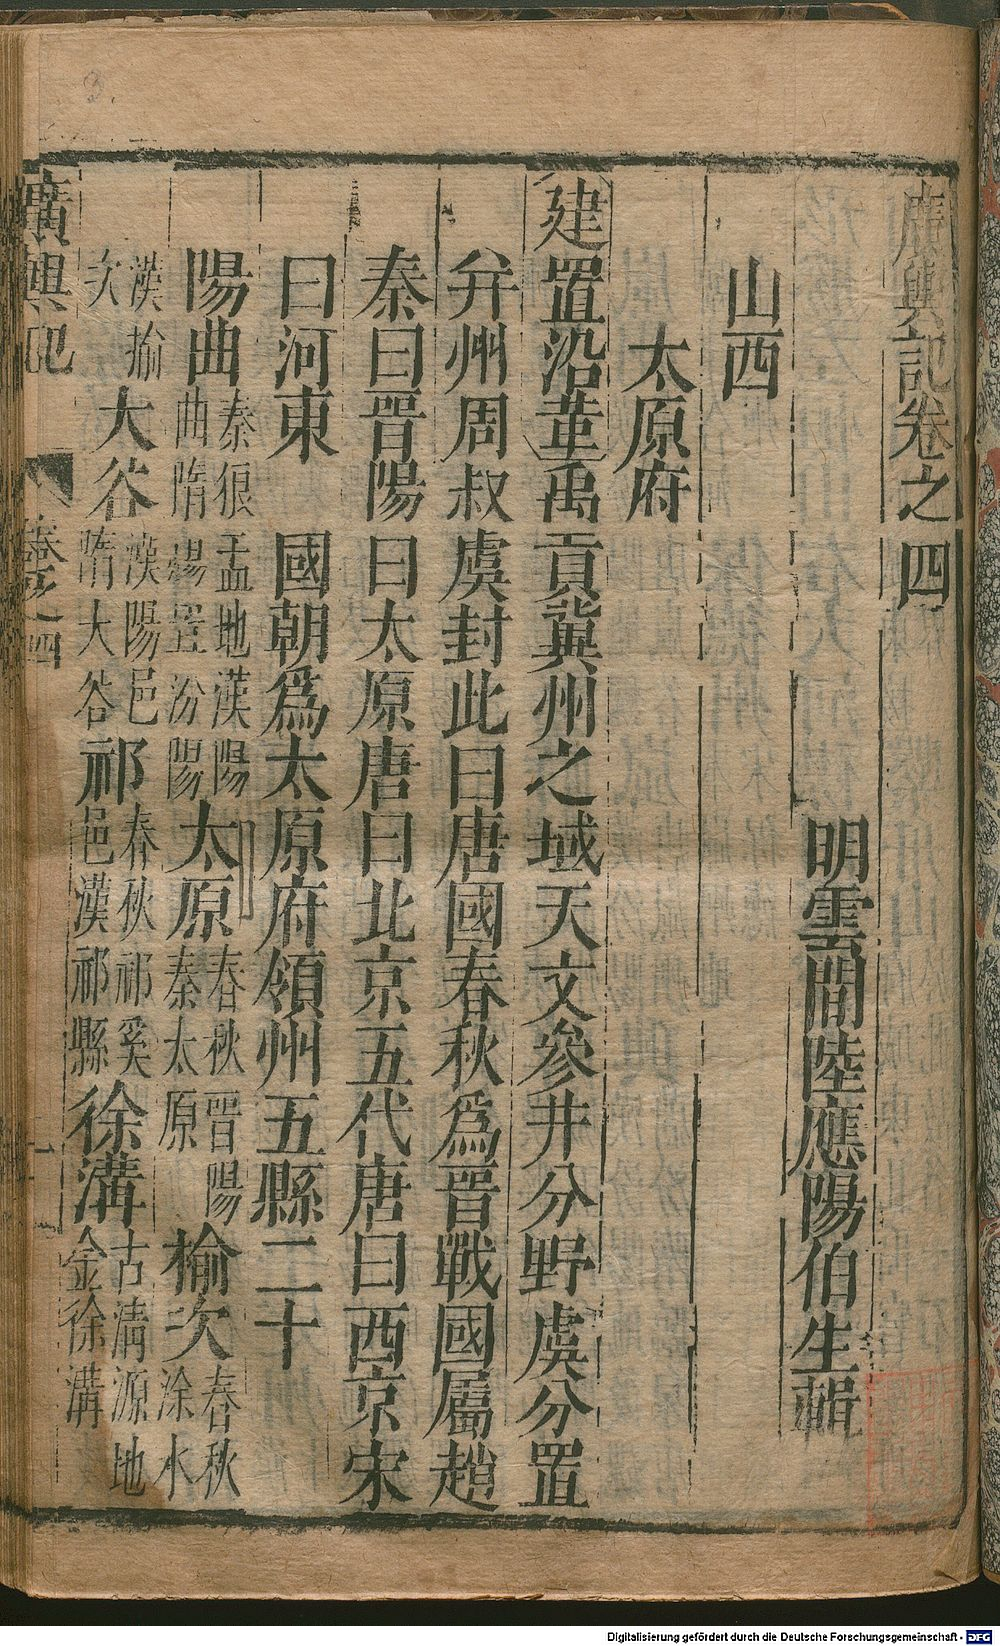 廣輿記卷之四
明雲間陸應陽伯生輯
山西
太原府
建置沿革禹貢冀州之域天文參井分野虞分置
并州周叔虞封此曰唐國春秋爲晉戰國屬趙
秦曰晉陽曰太原唐曰北京五代唐曰西京宋
曰河東國朝爲太原府領州五縣二十
陽曲秦狼盂地漢陽曲隋陽置汾陽太原春秋晉陽秦太原榆次春秋涂水
漢揄次大谷漢陽邑隋大谷祁春秋祁奚邑漢祁縣徐溝古清源地金徐溝
廣輿記
卷之四
一
Digitalisierung gefördert durch die Deutsche Forschungsgemeinschaft - DFG